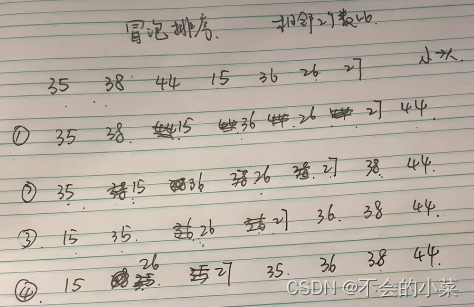 冒泡排序. 相邻2个数比.
35 38 44 15 36 26 27 小→大.
① 35 38. 15 36 26 27 44
② 35 15 36 26 27 38 44.
③ 15 35. 26 27 36. 38 44.
④ 15 26 27 35. 36 38 44.
CSDN @不会的小菜